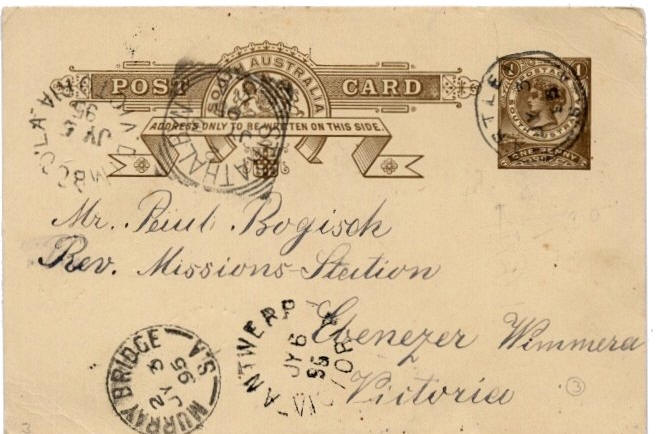 SOUTH AUSTRALIA
POST CARD
ADDRESS ONLY TO BE WRITTEN ON THIS SIDE.
POSTAGE
SOUTH AUSTRALIA
ONE PENNY
STRATHALBYN
JY 5
95
Mr. Paul Bogisch
Rev. Missions-Station
Ebenezer Wimmera
Victoria
MURRAY BRIDGE S.A.
2
JY 3
95
ANTWERP
JY 6
95
VICTORIA
3
3